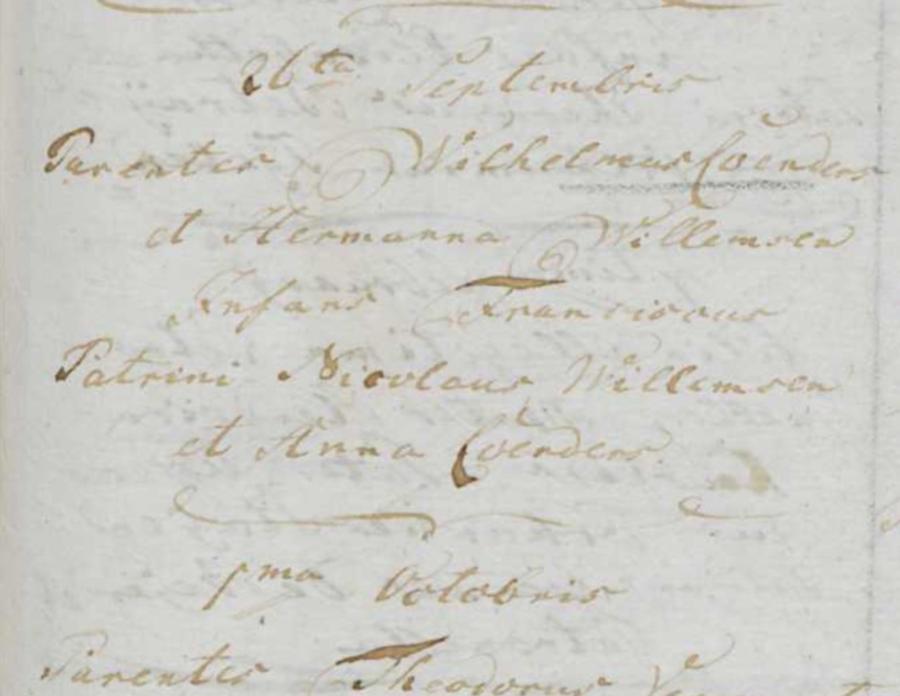 26ta Septembris
Parentes Wilhelmus Coenders
et Hermanna Willemsen
Infans Franciscus
Patrini Nicolaus Willemsen
et Anna Coenders
pma Octobris
Parentes Theodorus